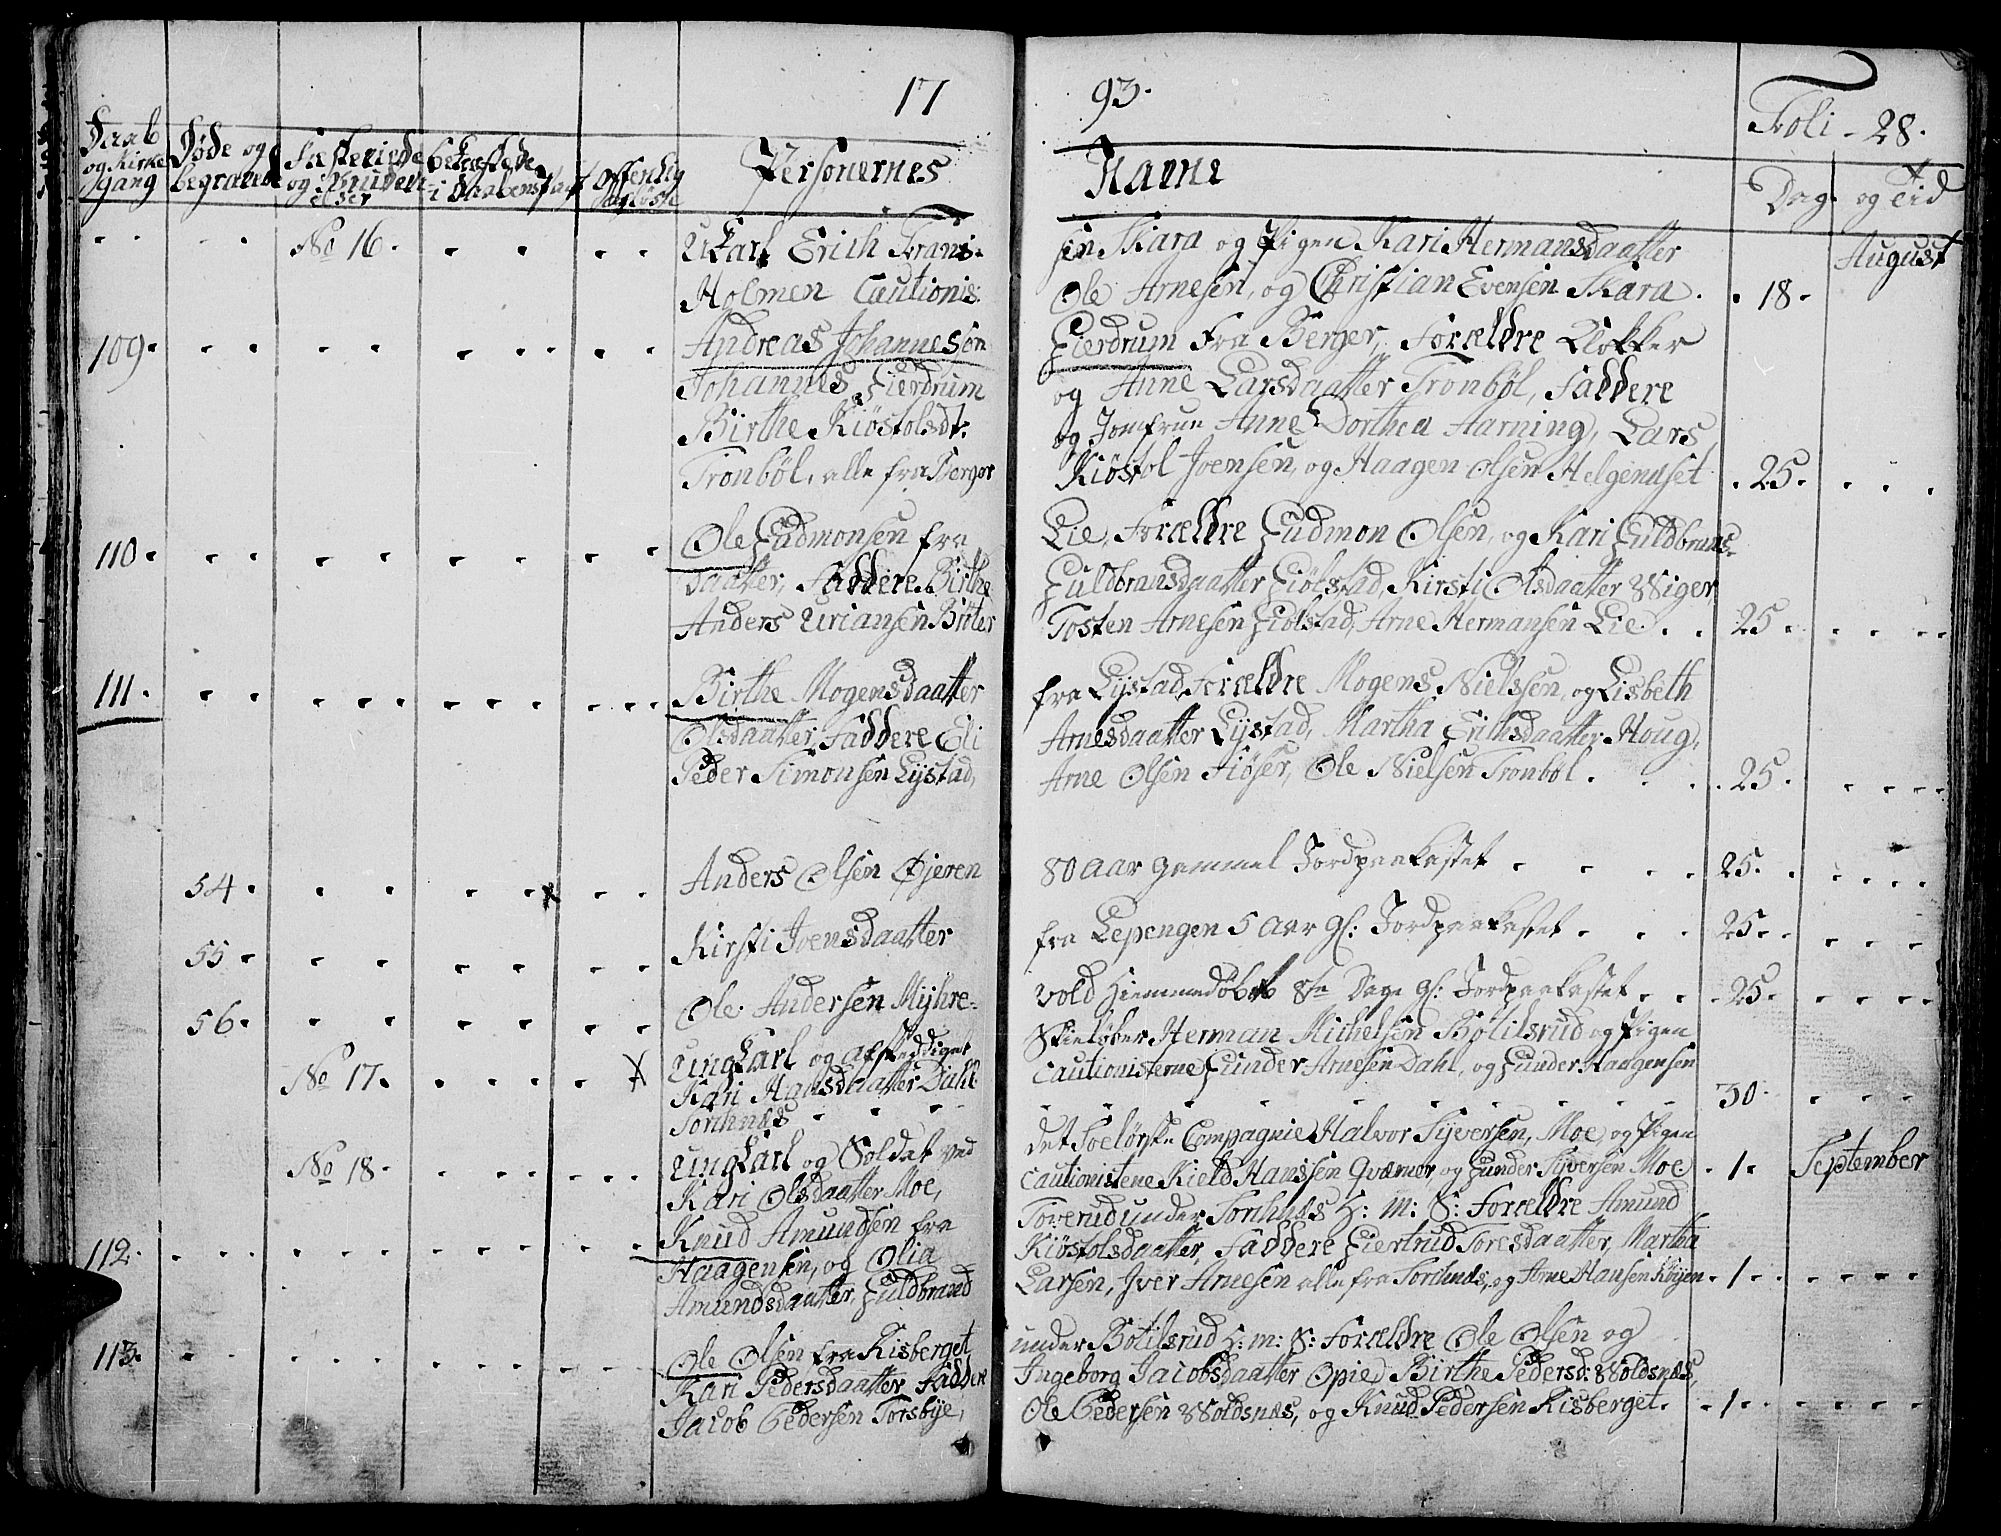 1793.
Foli - 28.
Daab og Kirke gang
Døde og begravede
Fæstede og Bruden
i Skabenst
Offentlig
Personernes Navne
Dag og Tid
No 16. Erich Frans- sen Skara og Pigen Kari Hermansdaatter August
Holmen Cautionis. Ole Arnesen, og Christian Evensen Skara. 18.
109. Andreas Johannesøn Gierdrum fra Berger, Forældre Klokker
Johannes Gierdrum og Anne Larsdaatter Tronbøl, Faddere
Birthe Kiøstolsdt: og Jomfrue Anne Dorthea Aarning, Lars
Tronbøl, alle fra Berger Kiøstol Joensen, og Haagen Olsen Helgenæset 25.
110. Ole Gudmonsen fra Lie, Forældre Gudmon Olsen, og Kari Guldbrans-
daatter, Faddere Birthe Guldbransdaatter Fiølstad, Kirsti Olsdaatter Wiger,
Anders Uriansen Bitter Tosten Arnesen Fiølstad, Arne Hermansen Lie. 25.
111. Birthe Mogensdaatter fra Lystad, Forældre Mogens Nielssen, og Lisbeth
Olsdaatter, Faddere Eli Arnesdaatter Lystad, Martha Erichsdaatter Houg,
Peder Simonsen Lystad, Arne Olsen Fiøser, Ole Nielsen Tronbøl. 25.
54. Anders Olsen Øjeren 80 aar gammel Jordpaakastet 25.
55. Kirsti Joensdaatter fra Lepengen 5 Aar gl: Jordpaakastet 25.
56. Ole Andersen Myhre- vold Hiemmedøbt 8te Dage gl: Jordpaakastet 25.
No 17. Ungkarl og afskeddiget Skieløber Herman Michelsøn Bøtilsrud og Pigen
Kari Hansdaatter Dahl Cautionisterne Gunder Arnesen Dahl, og Gunder Haagensen
Sorknæs 30.
No 18. Ungkarl og Soldat ved det Soelørske Compagnie Halvor Syversen, Moe, og Pigen
Kari Olsdaatter Moe, Cautionistene Kield Hanssen Qværner og Gunder Syversen Moe 1. September
112. Knud Amundsen fra Toverud under Sorknæs H: M: S: Forældre Amund
Haagensen, og Olia Kiøstolsdaatter, Faddere Giertrud Toresdaatter, Martha
Amundsdaatter, Guldbrand Larsen, Iver Arnesen alle fra Sorknæs, og Arne Hansen 1.
113. Ole Olsen fra Kisberget under Botilsrud H: m: S: Forældre Ole Olsen og
Kari Pedersdaatter Faddere Ingeborg Jacobsdaatter Opie Birthe Pedersd: Woldsnæs,
Jacob Pedersen Torsbye, Ole Pedersen Woldsnæs, og Knud Pedersen Kisberget. 1.